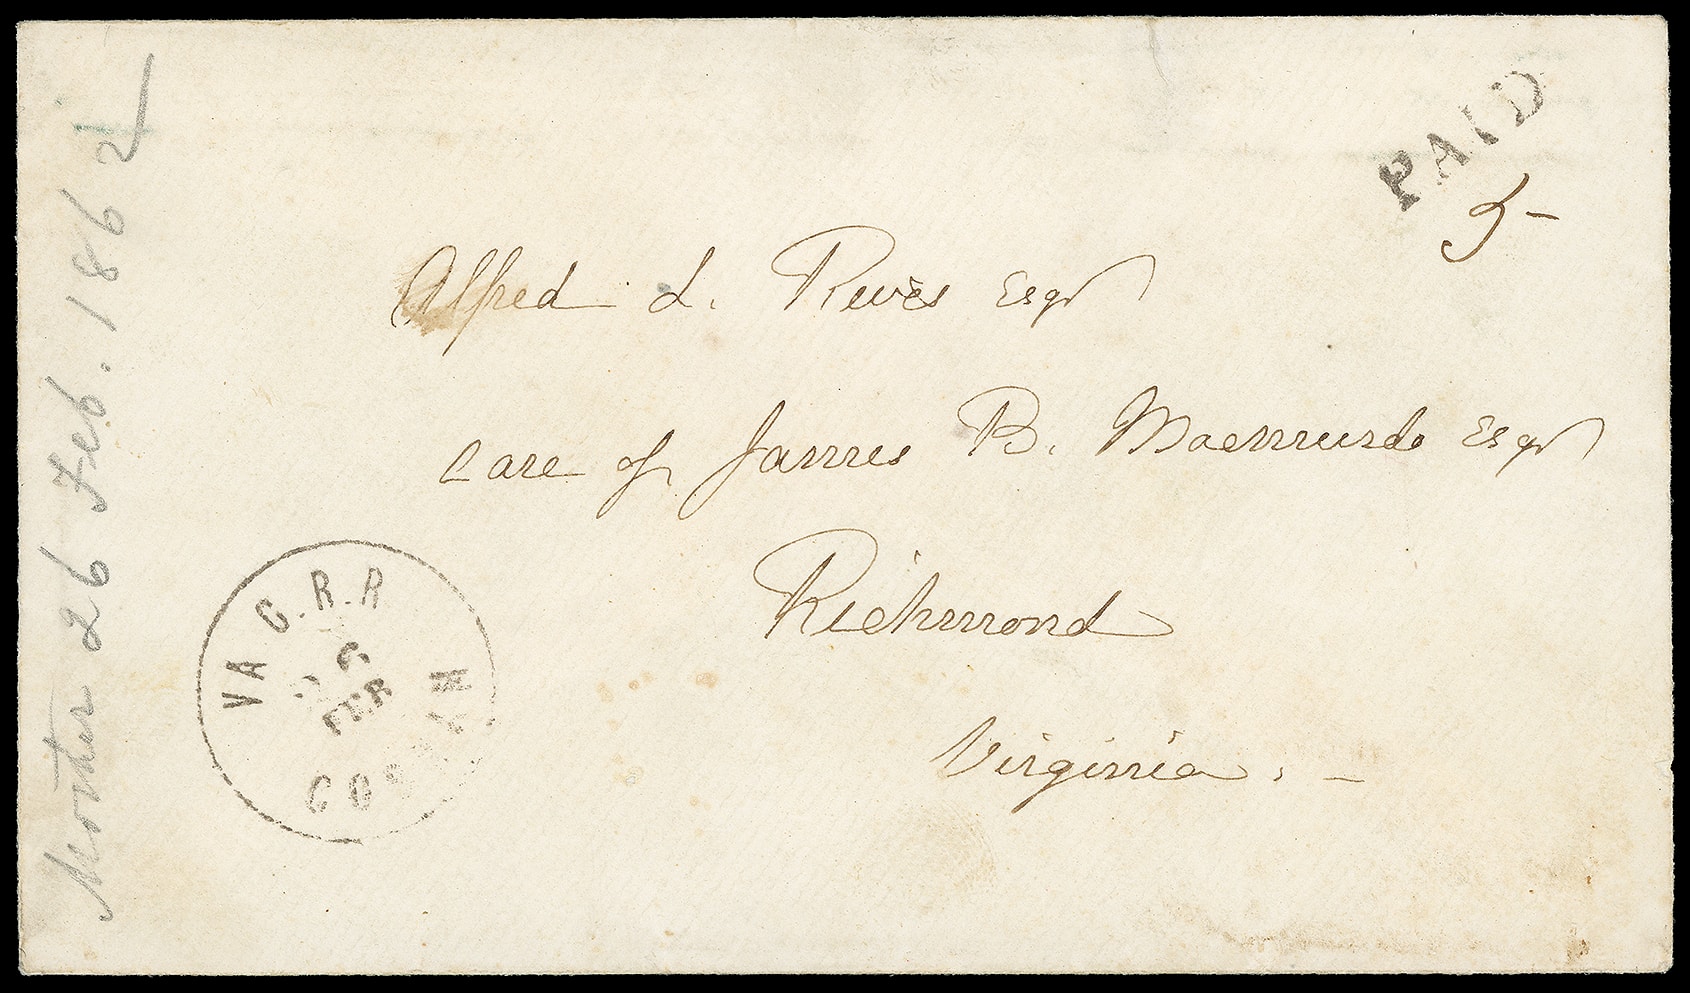 PAID
5
Alfred L. Rives Esqr
Care of James B. Macmurdo Esqr
Richmond
Virginia. -
VA C.R.R
26
FEB
Mother 26 Feb. 1862